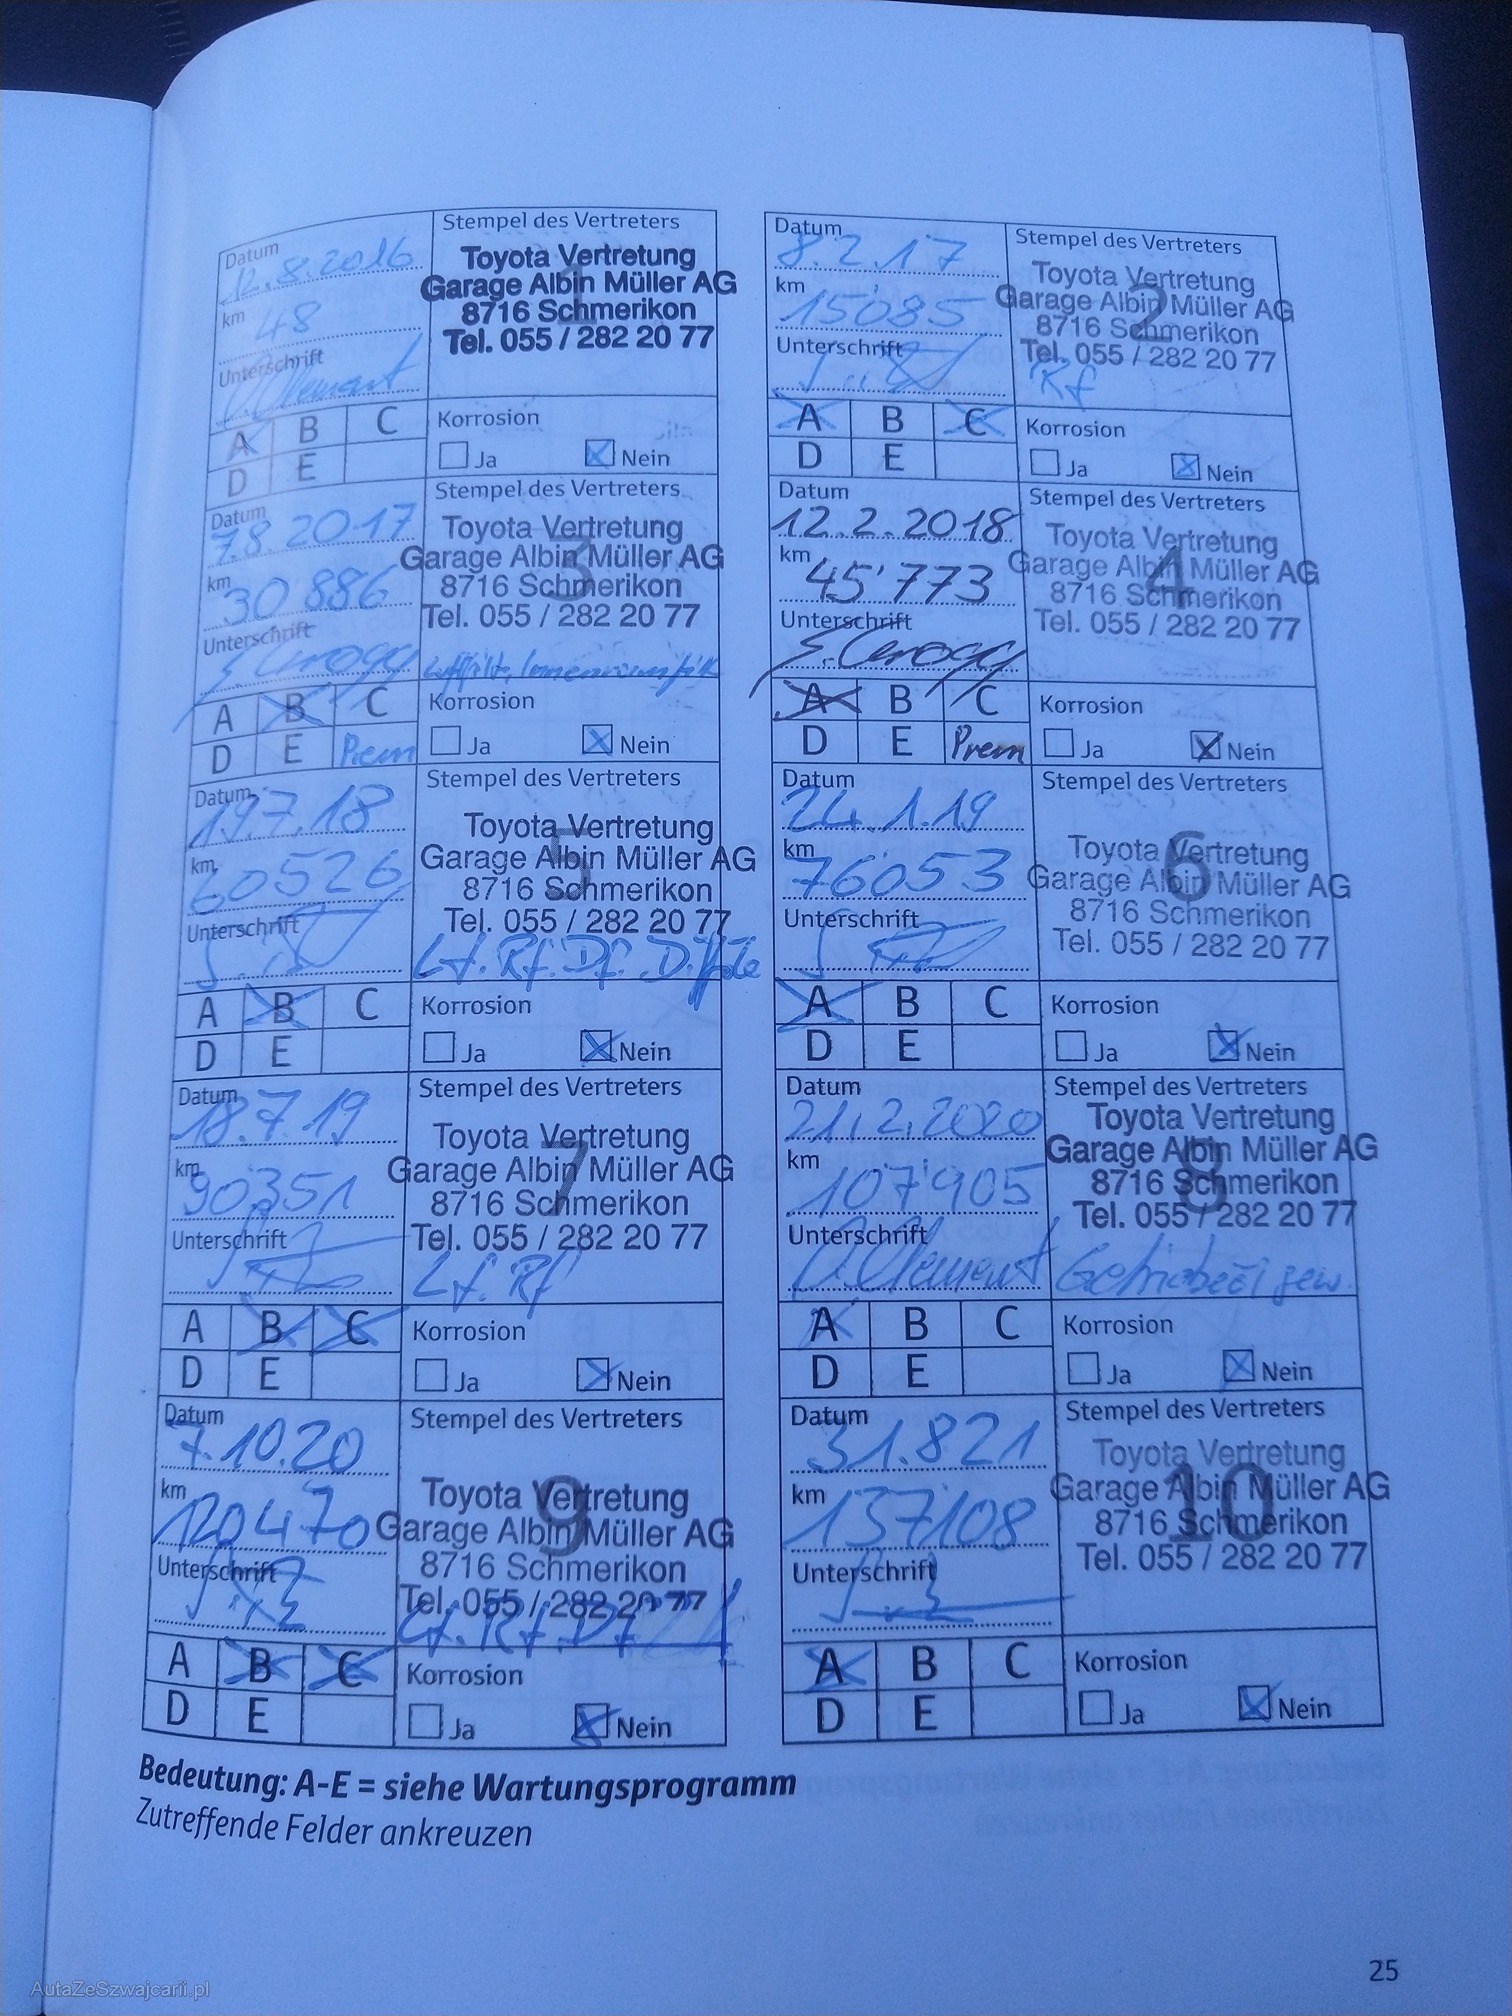 Datum
12.8.2016
km 48
Unterschrift
Stempel des Vertreters
1
Toyota Vertretung
Garage Albin Müller AG
8716 Schmerikon
Tel. 055 / 282 20 77
A B C
D E
Korrosion
Ja Nein
Datum
8.2.17
km
15'085
Unterschrift
Stempel des Vertreters
2
Toyota Vertretung
Garage Albin Müller AG
8716 Schmerikon
Tel. 055 / 282 20 77
Rf
A B C
D E
Korrosion
Ja Nein
Datum
7.8.2017
km
30 886
Unterschrift
Stempel des Vertreters
3
Toyota Vertretung
Garage Albin Müller AG
8716 Schmerikon
Tel. 055 / 282 20 77
A B C
D E Prem
Korrosion
Ja Nein
Datum
12.2.2018
km
45'773
Unterschrift
Stempel des Vertreters
4
Toyota Vertretung
Garage Albin Müller AG
8716 Schmerikon
Tel. 055 / 282 20 77
A B C
D E Prem
Korrosion
Ja Nein
Datum
19.7.18
km
60526
Unterschrift
Stempel des Vertreters
5
Toyota Vertretung
Garage Albin Müller AG
8716 Schmerikon
Tel. 055 / 282 20 77
Lf. Rf. Df.
A B C
D E
Korrosion
Ja Nein
Datum
24.1.19
km
76053
Unterschrift
Stempel des Vertreters
6
Toyota Vertretung
Garage Albin Müller AG
8716 Schmerikon
Tel. 055 / 282 20 77
A B C
D E
Korrosion
Ja Nein
Datum
18.7.19
km
90351
Unterschrift
Stempel des Vertreters
7
Toyota Vertretung
Garage Albin Müller AG
8716 Schmerikon
Tel. 055 / 282 20 77
Lf. Rf
A B C
D E
Korrosion
Ja Nein
Datum
21.2.2020
km
107'905
Unterschrift
Stempel des Vertreters
8
Toyota Vertretung
Garage Albin Müller AG
8716 Schmerikon
Tel. 055 / 282 20 77
Getriebeöl gew.
A B C
D E
Korrosion
Ja Nein
Datum
7.10.20
km
120470
Unterschrift
Stempel des Vertreters
9
Toyota Vertretung
Garage Albin Müller AG
8716 Schmerikon
Tel. 055 / 282 20 77
Lf. Rf. Df
A B C
D E
Korrosion
Ja Nein
Datum
31.8 21
km
137108
Unterschrift
Stempel des Vertreters
10
Toyota Vertretung
Garage Albin Müller AG
8716 Schmerikon
Tel. 055 / 282 20 77
A B C
D E
Korrosion
Ja Nein
Bedeutung: A-E = siehe Wartungsprogramm
Zutreffende Felder ankreuzen
25
AutaZeSzwajcarii.pl